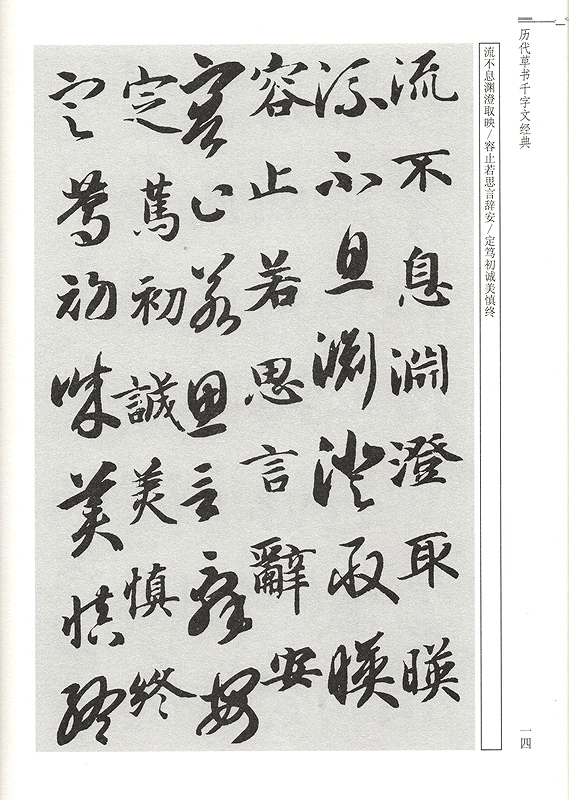 历代草书千字文经典
一四
流不息渊澄取映/容止若思言辞安/定笃初诚美慎终
流不息淵澄取暎
流不息淵澄取暎
容止若思言辭安
容止若思言辭安
定篤初誠美慎終
定篤初誠美慎終